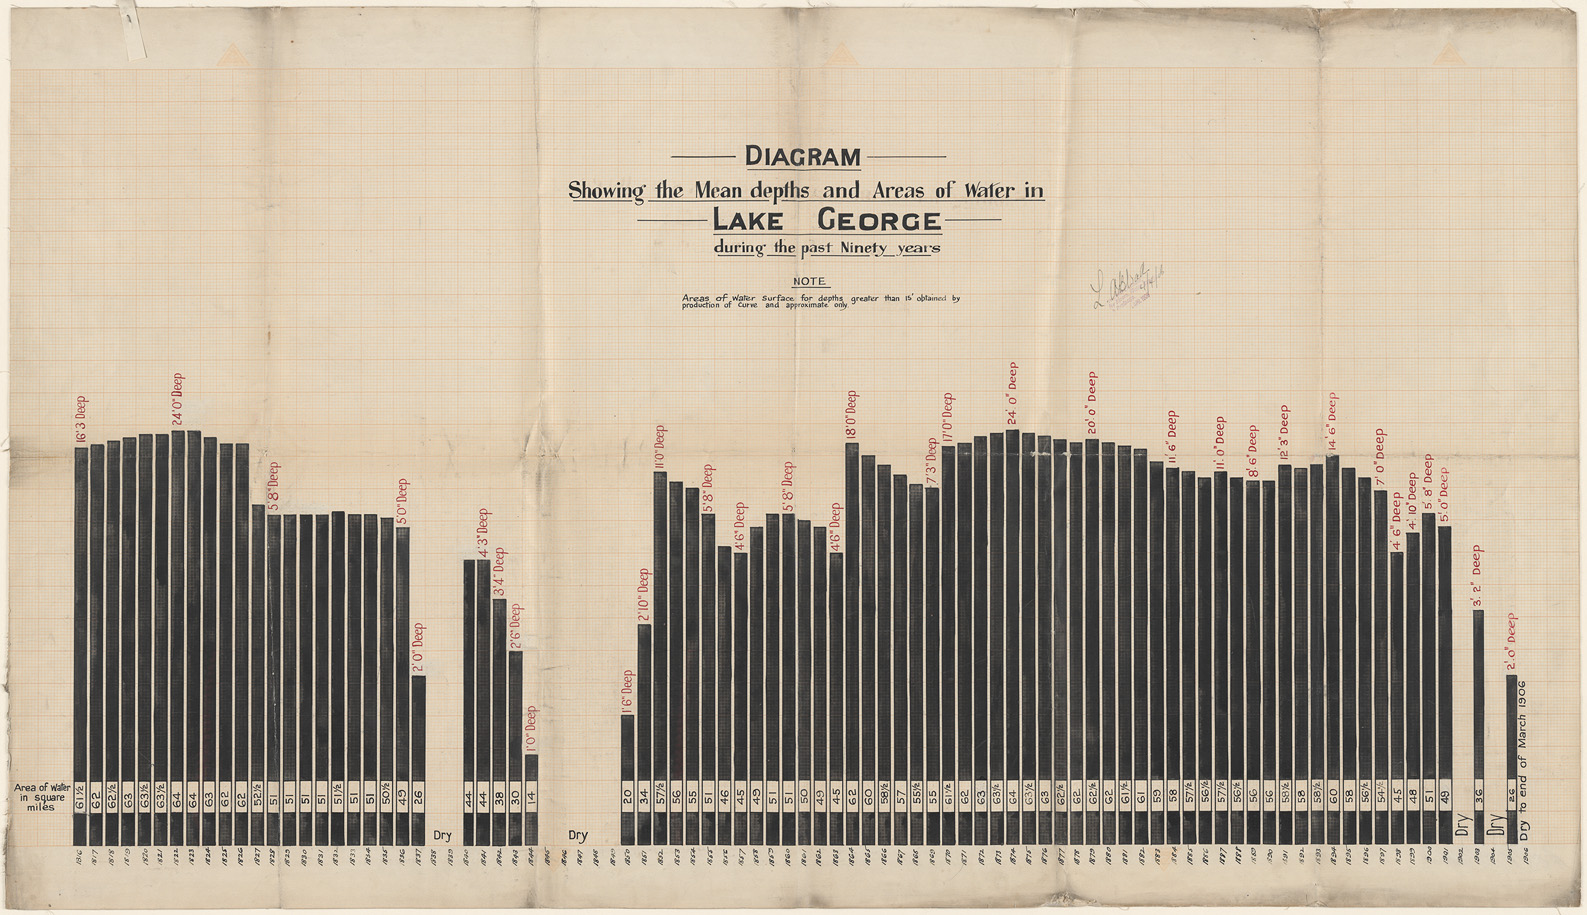 DIAGRAM
Showing the Mean depths and Areas of Water in
LAKE GEORGE
during the past Ninety years
NOTE
Areas of Water Surface for depths greater than 15' obtained by
production of Curve and approximate only.
16'3 Deep
24'0" Deep
5'8" Deep
5'0" Deep
2'0" Deep
4'3" Deep
3'4" Deep
2'6" Deep
1'0" Deep
1'6" Deep
2'10" Deep
11'0" Deep
5'8" Deep
4'6" Deep
5'8" Deep
4'6" Deep
18'0" Deep
7'3" Deep
17'0" Deep
24'0" Deep
20'0" Deep
11'6" Deep
11'0" Deep
8'6" Deep
12'3" Deep
14'6" Deep
7'0" Deep
4'6" Deep
4'10" Deep
5'8" Deep
5'0" Deep
3'2" Deep
2'0" Deep
Dry to end of March 1906
Area of Water
in square
miles
61½ 62 62½ 63 63½ 63½ 64 64 63 62 62 52½ 51 51 51 51 51½ 51 51 50½ 49 26 44 44 38 30 14 20 34 57½ 56 55 51 46 45 49 51 51 50 49 45 62 60 58½ 57 55½ 55 61½ 62 63 63½ 64 63½ 63 62½ 62 62½ 62 61½ 61 59 58 57½ 56½ 57½ 56½ 56 56 58½ 58 58½ 60 58 56½ 54½ 45 48 51 49 36 26
Dry Dry Dry Dry
1816 1817 1818 1819 1820 1821 1822 1823 1824 1825 1826 1827 1828 1829 1830 1831 1832 1833 1834 1835 1836 1837 1838 1839 1840 1841 1842 1843 1844 1845 1846 1847 1848 1849 1850 1851 1852 1853 1854 1855 1856 1857 1858 1859 1860 1861 1862 1863 1864 1865 1866 1867 1868 1869 1870 1871 1872 1873 1874 1875 1876 1877 1878 1879 1880 1881 1882 1883 1884 1885 1886 1887 1888 1889 1890 1891 1892 1893 1894 1895 1896 1897 1898 1899 1900 1901 1902 1903 1904 1905 1906